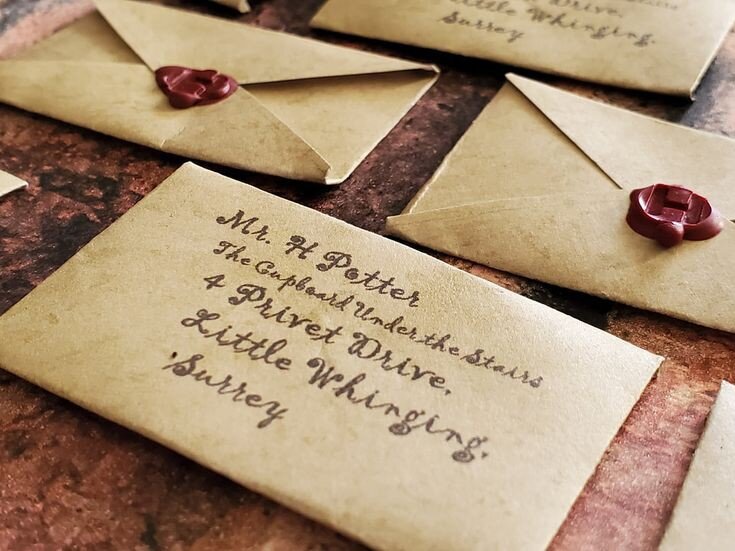 Drive,
Little Whinging,
Surrey
H
H
Mr. H Potter
The Cupboard Under the Stairs
4 Privet Drive,
Little Whinging,
Surrey